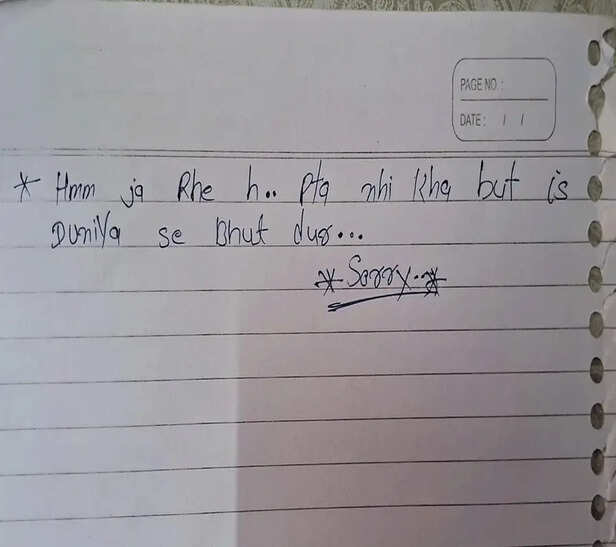 PAGE NO.:
DATE: / /
* Hmm ja Rhe h.. Pta nhi kha but is
Duniya se Bhut dur...
*Sorry..*